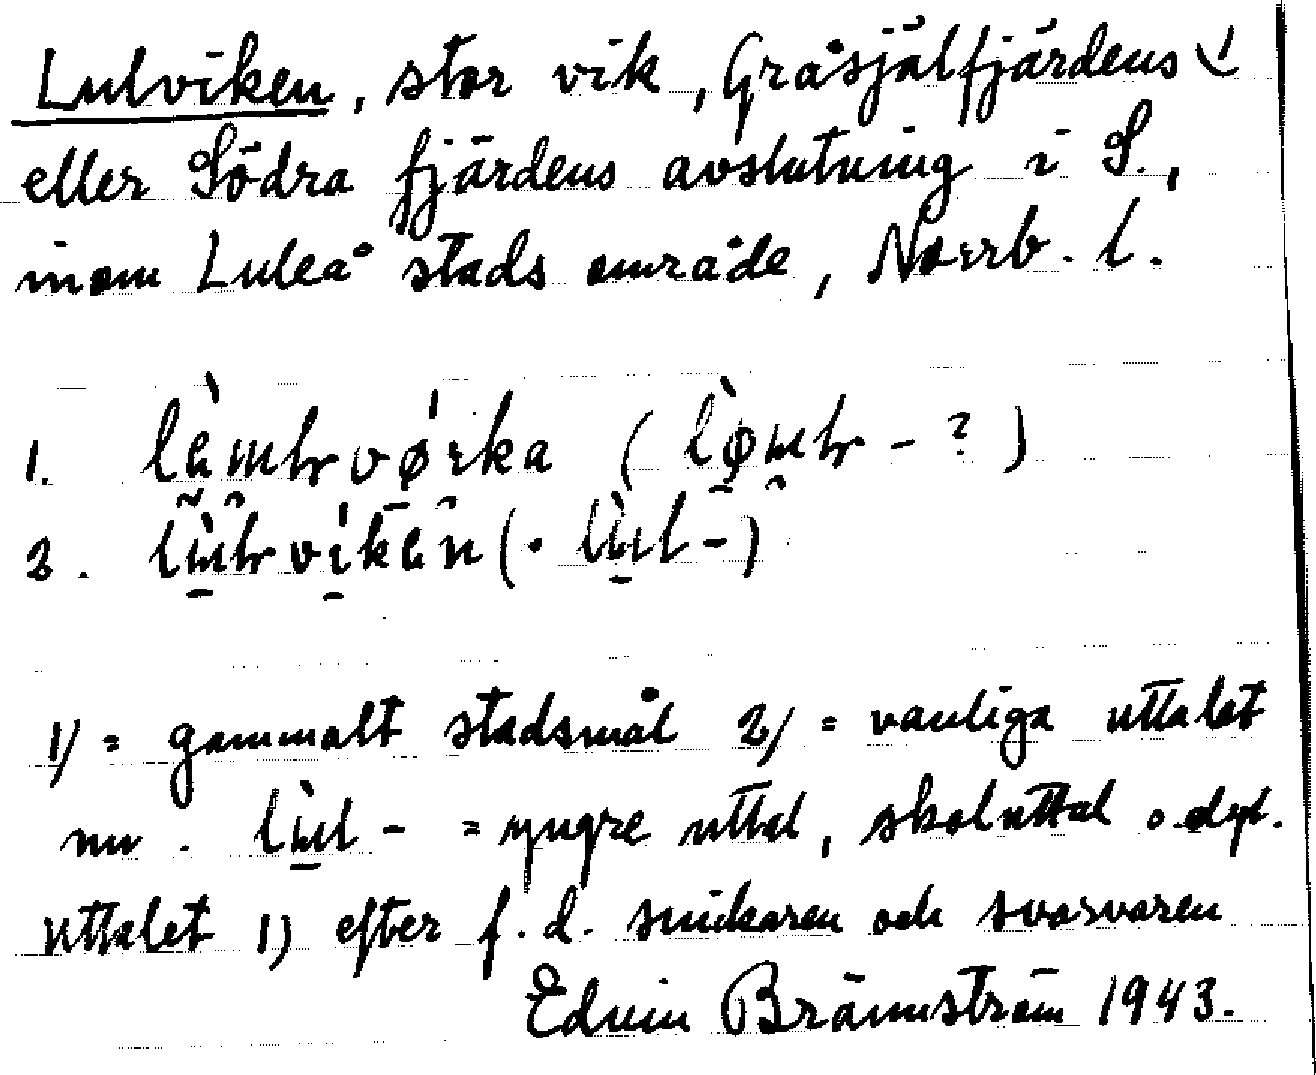 Lulviken, stor vik, Gråsjälfjärdens
eller Södra fjärdens avslutning i S.,
inom Luleå stads område, Norrb. l.
1.
2.
1) = gammalt stadsmål 2) = vanliga uttalet
nu. = yngre uttal, skoluttal o. dyl.
uttalet 1) efter f. d. snickaren och svarvaren
Edvin Brännström 1943.